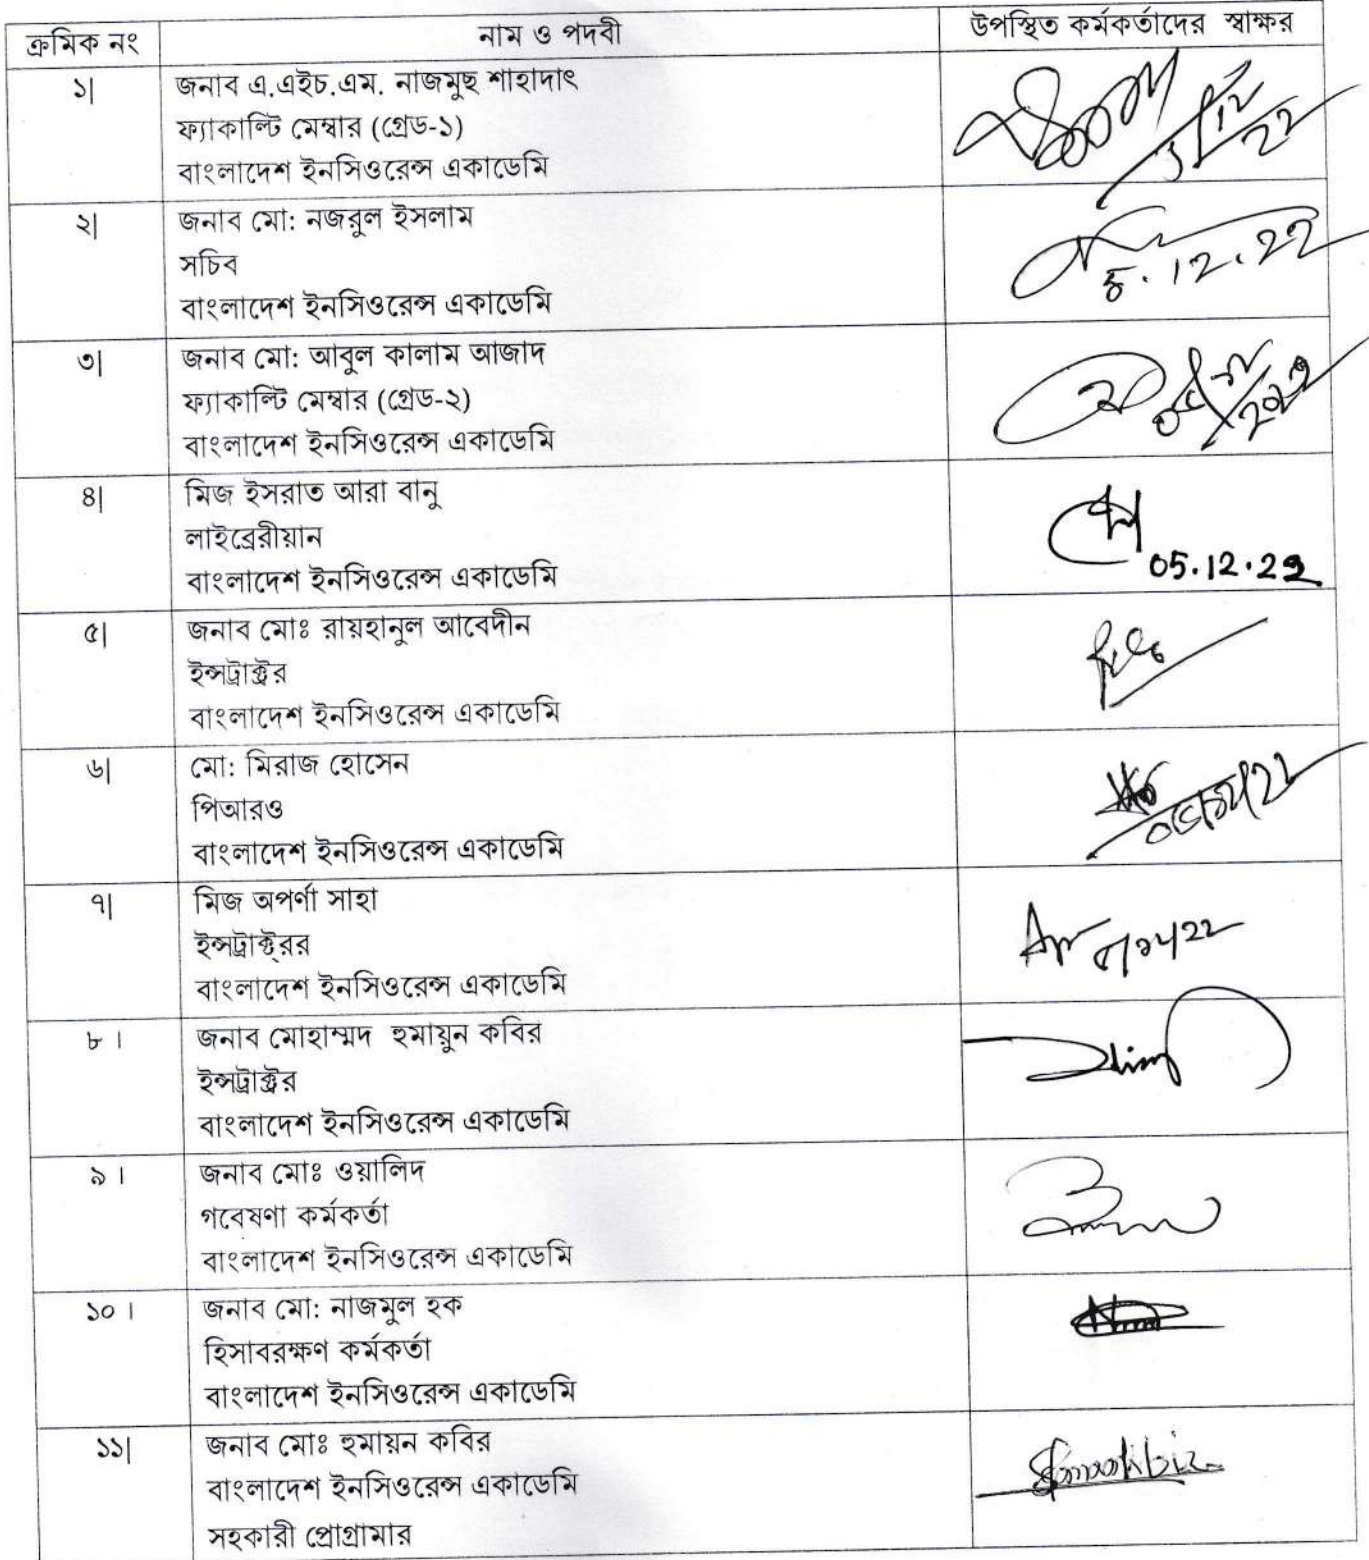 ক্রমিক নং নাম ও পদবী উপস্থিত কর্মকর্তাদের স্বাক্ষর
১| জনাব এ.এইচ.এম. নাজমুছ শাহাদাৎ
ফ্যাকাল্টি মেম্বার (গ্রেড-১)
বাংলাদেশ ইনসিওরেন্স একাডেমি
২| জনাব মো: নজরুল ইসলাম
সচিব
বাংলাদেশ ইনসিওরেন্স একাডেমি
৩| জনাব মো: আবুল কালাম আজাদ
ফ্যাকাল্টি মেম্বার (গ্রেড-২)
বাংলাদেশ ইনসিওরেন্স একাডেমি
৪| মিজ ইসরাত আরা বানু
লাইব্রেরীয়ান
বাংলাদেশ ইনসিওরেন্স একাডেমি 05.12.22
৫| জনাব মোঃ রায়হানুল আবেদীন
ইন্সট্রাক্ট্রর
বাংলাদেশ ইনসিওরেন্স একাডেমি
৬| মো: মিরাজ হোসেন
পিআরও
বাংলাদেশ ইনসিওরেন্স একাডেমি
৭| মিজ অপর্ণা সাহা
ইন্সট্রাক্ট্ররর
বাংলাদেশ ইনসিওরেন্স একাডেমি
৮। জনাব মোহাম্মদ হুমায়ুন কবির
ইন্সট্রাক্ট্রর
বাংলাদেশ ইনসিওরেন্স একাডেমি
৯। জনাব মোঃ ওয়ালিদ
গবেষণা কর্মকর্তা
বাংলাদেশ ইনসিওরেন্স একাডেমি
১০। জনাব মো: নাজমুল হক
হিসাবরক্ষণ কর্মকর্তা
বাংলাদেশ ইনসিওরেন্স একাডেমি
১১| জনাব মোঃ হুমায়ন কবির
বাংলাদেশ ইনসিওরেন্স একাডেমি
সহকারী প্রোগ্রামার